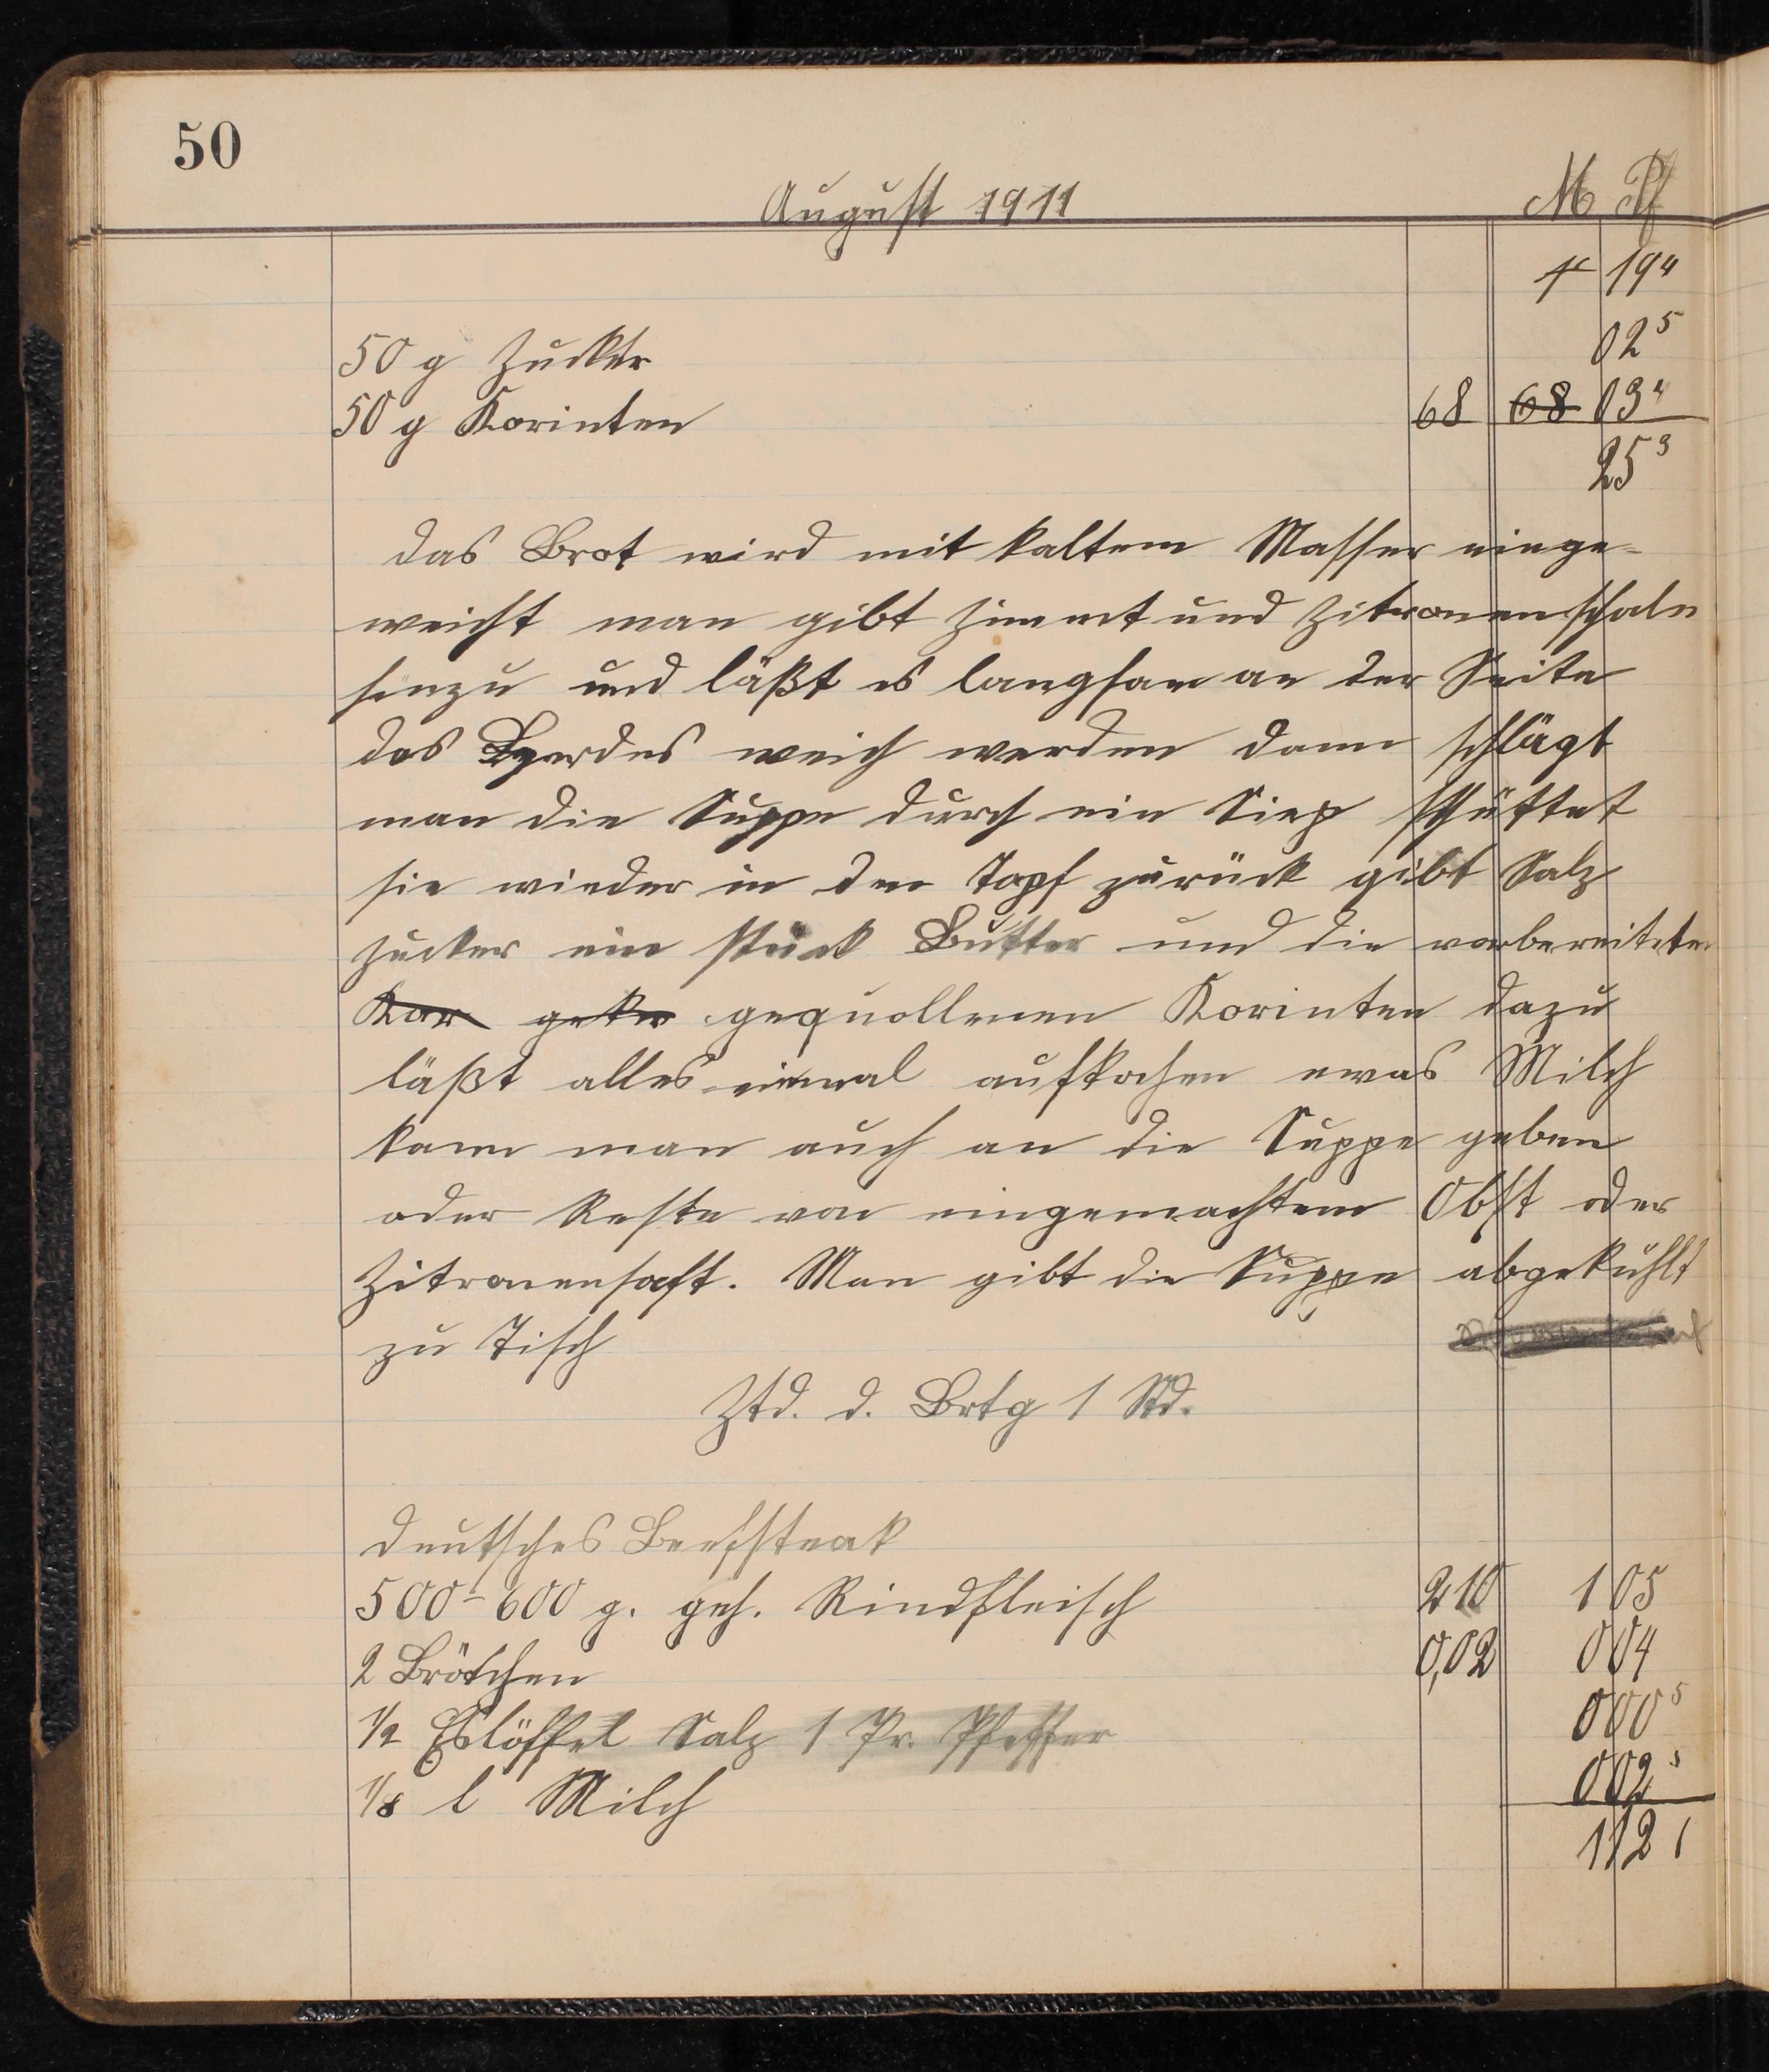 50
August 1911 M Pf
19⁴
50 g Zucker 02⁵
50 g Korinten 68 68 03⁴
25³
das Brot wird mit kaltem Wasser einge-
weicht man gibt Zimmt und Zitronenschale
hinzu und läßt es langsam an der Seite
des Herdes weich werden dann schlägt
man die Suppe durch ein Siep schüttet
sie wieder in den Topf zurück gibt Salz
Zucker ein stück Butter und die vorbereiteten
Kor gequollenen Korinten dazu
läßt alles einmal aufkochen ewas Milch
kann man auch an die Suppe geben
oder Reste von eingemachtem Obst oder
Zitronensaft. Man gibt die Suppe abgekühlt
zu Tisch
Ztd. d. Brtg 1 Std.
deutsches Beefsteak
500-600 g. geh. Rindfleisch 210 1 05
2 Brötchen 0,02 004
1/2 Eslöffel Salz 1 Pr. Pfeffer 000⁵
1/8 l Milch 002⁵
112 1